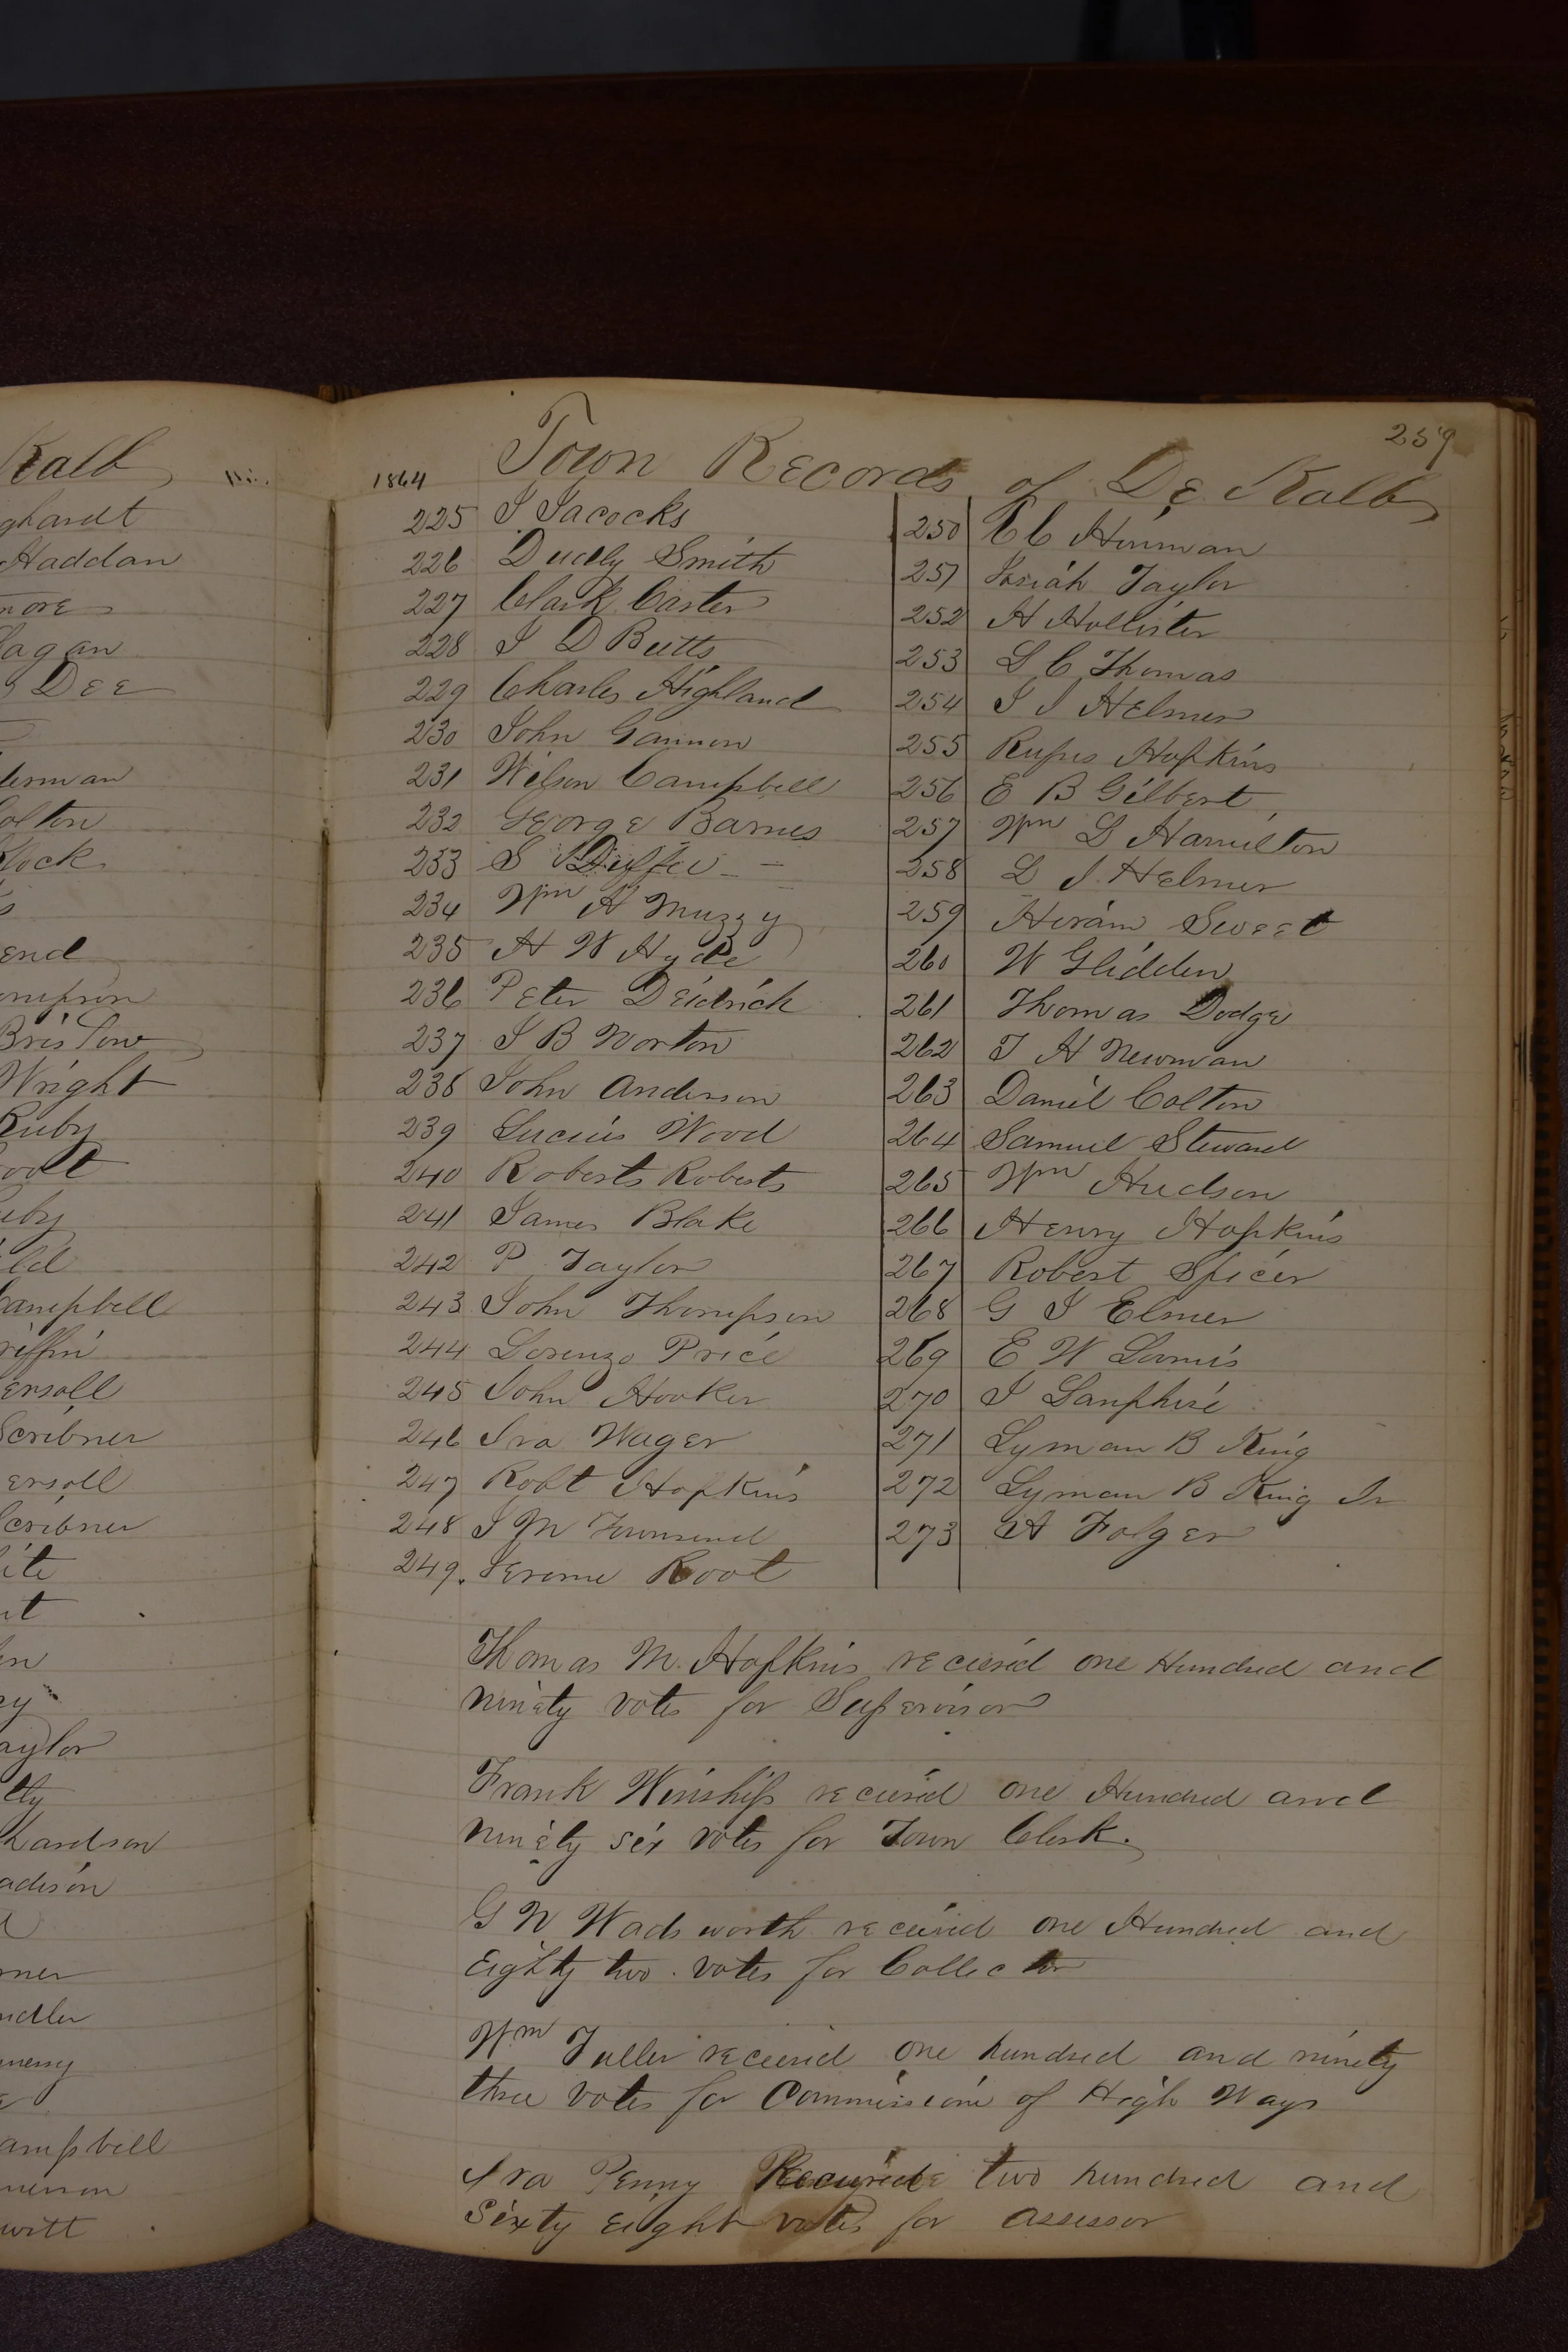 Kalb
ghardt
Haddan
more
agan
Dee
erman
olton
lock
end
ompson
Bristow
Wright
Ruby
oot
uby
ld
Campbell
riffin
ersoll
Scribner
ersoll
Scribner
ite
nt
en
ey
aylor
lty
hardson
adison
rner
ndler
merry
ampbell
merson
witt
259
1864 Town Records of De Kalb
225 J Jacocks
226 Dudly Smith
227 Clark Carter
228 J D Butts
229 Charles Highland
230 John Gannon
231 Wilson Campbell
232 George Barnes
233 S Duffee
234 Wm H Muzzy
235 H W Hyde
236 Peter Deidrich
237 J B Norton
238 John Anderson
239 Lucius Wood
240 Roberts Roberts
241 James Blake
242 P Taylor
243 John Thompson
244 Lorenzo Price
245 John Hooker
246 Ira Wager
247 Robt Hopkins
248 J M Townsend
249. Jerome Root
250 E C Hinman
251 Josiah Taylor
252 H Hollister
253 L C Thomas
254 J J Helmer
255 Rufus Hopkins
256 E B Gilbert
257 Wm L Hamilton
258 L J Helmer
259 Hiram Sweet
260 W Glidden
261 Thomas Dodge
262 T H Newman
263 Daniel Colton
264 Samuel Steward
265 Wm Hudson
266 Henry Hopkins
267 Robert Spicer
268 G J Elmer
269 E W Loomis
270 J Lanphire
271 Lyman B King
272 Lyman B King Jr
273 A Folger
Thomas M. Hopkins recieved one Hundred and
ninety votes for Supervisor
Frank Winship recieved one Hundred and
ninety six votes for Town Clerk.
G W Wadsworth received one Hundred and
Eighty two votes for Collector
Wm Fuller received one hundred and ninety
three votes for Commissione of High Ways
Ira Penny Received two hundred and
Sixty Eight votes for assessor